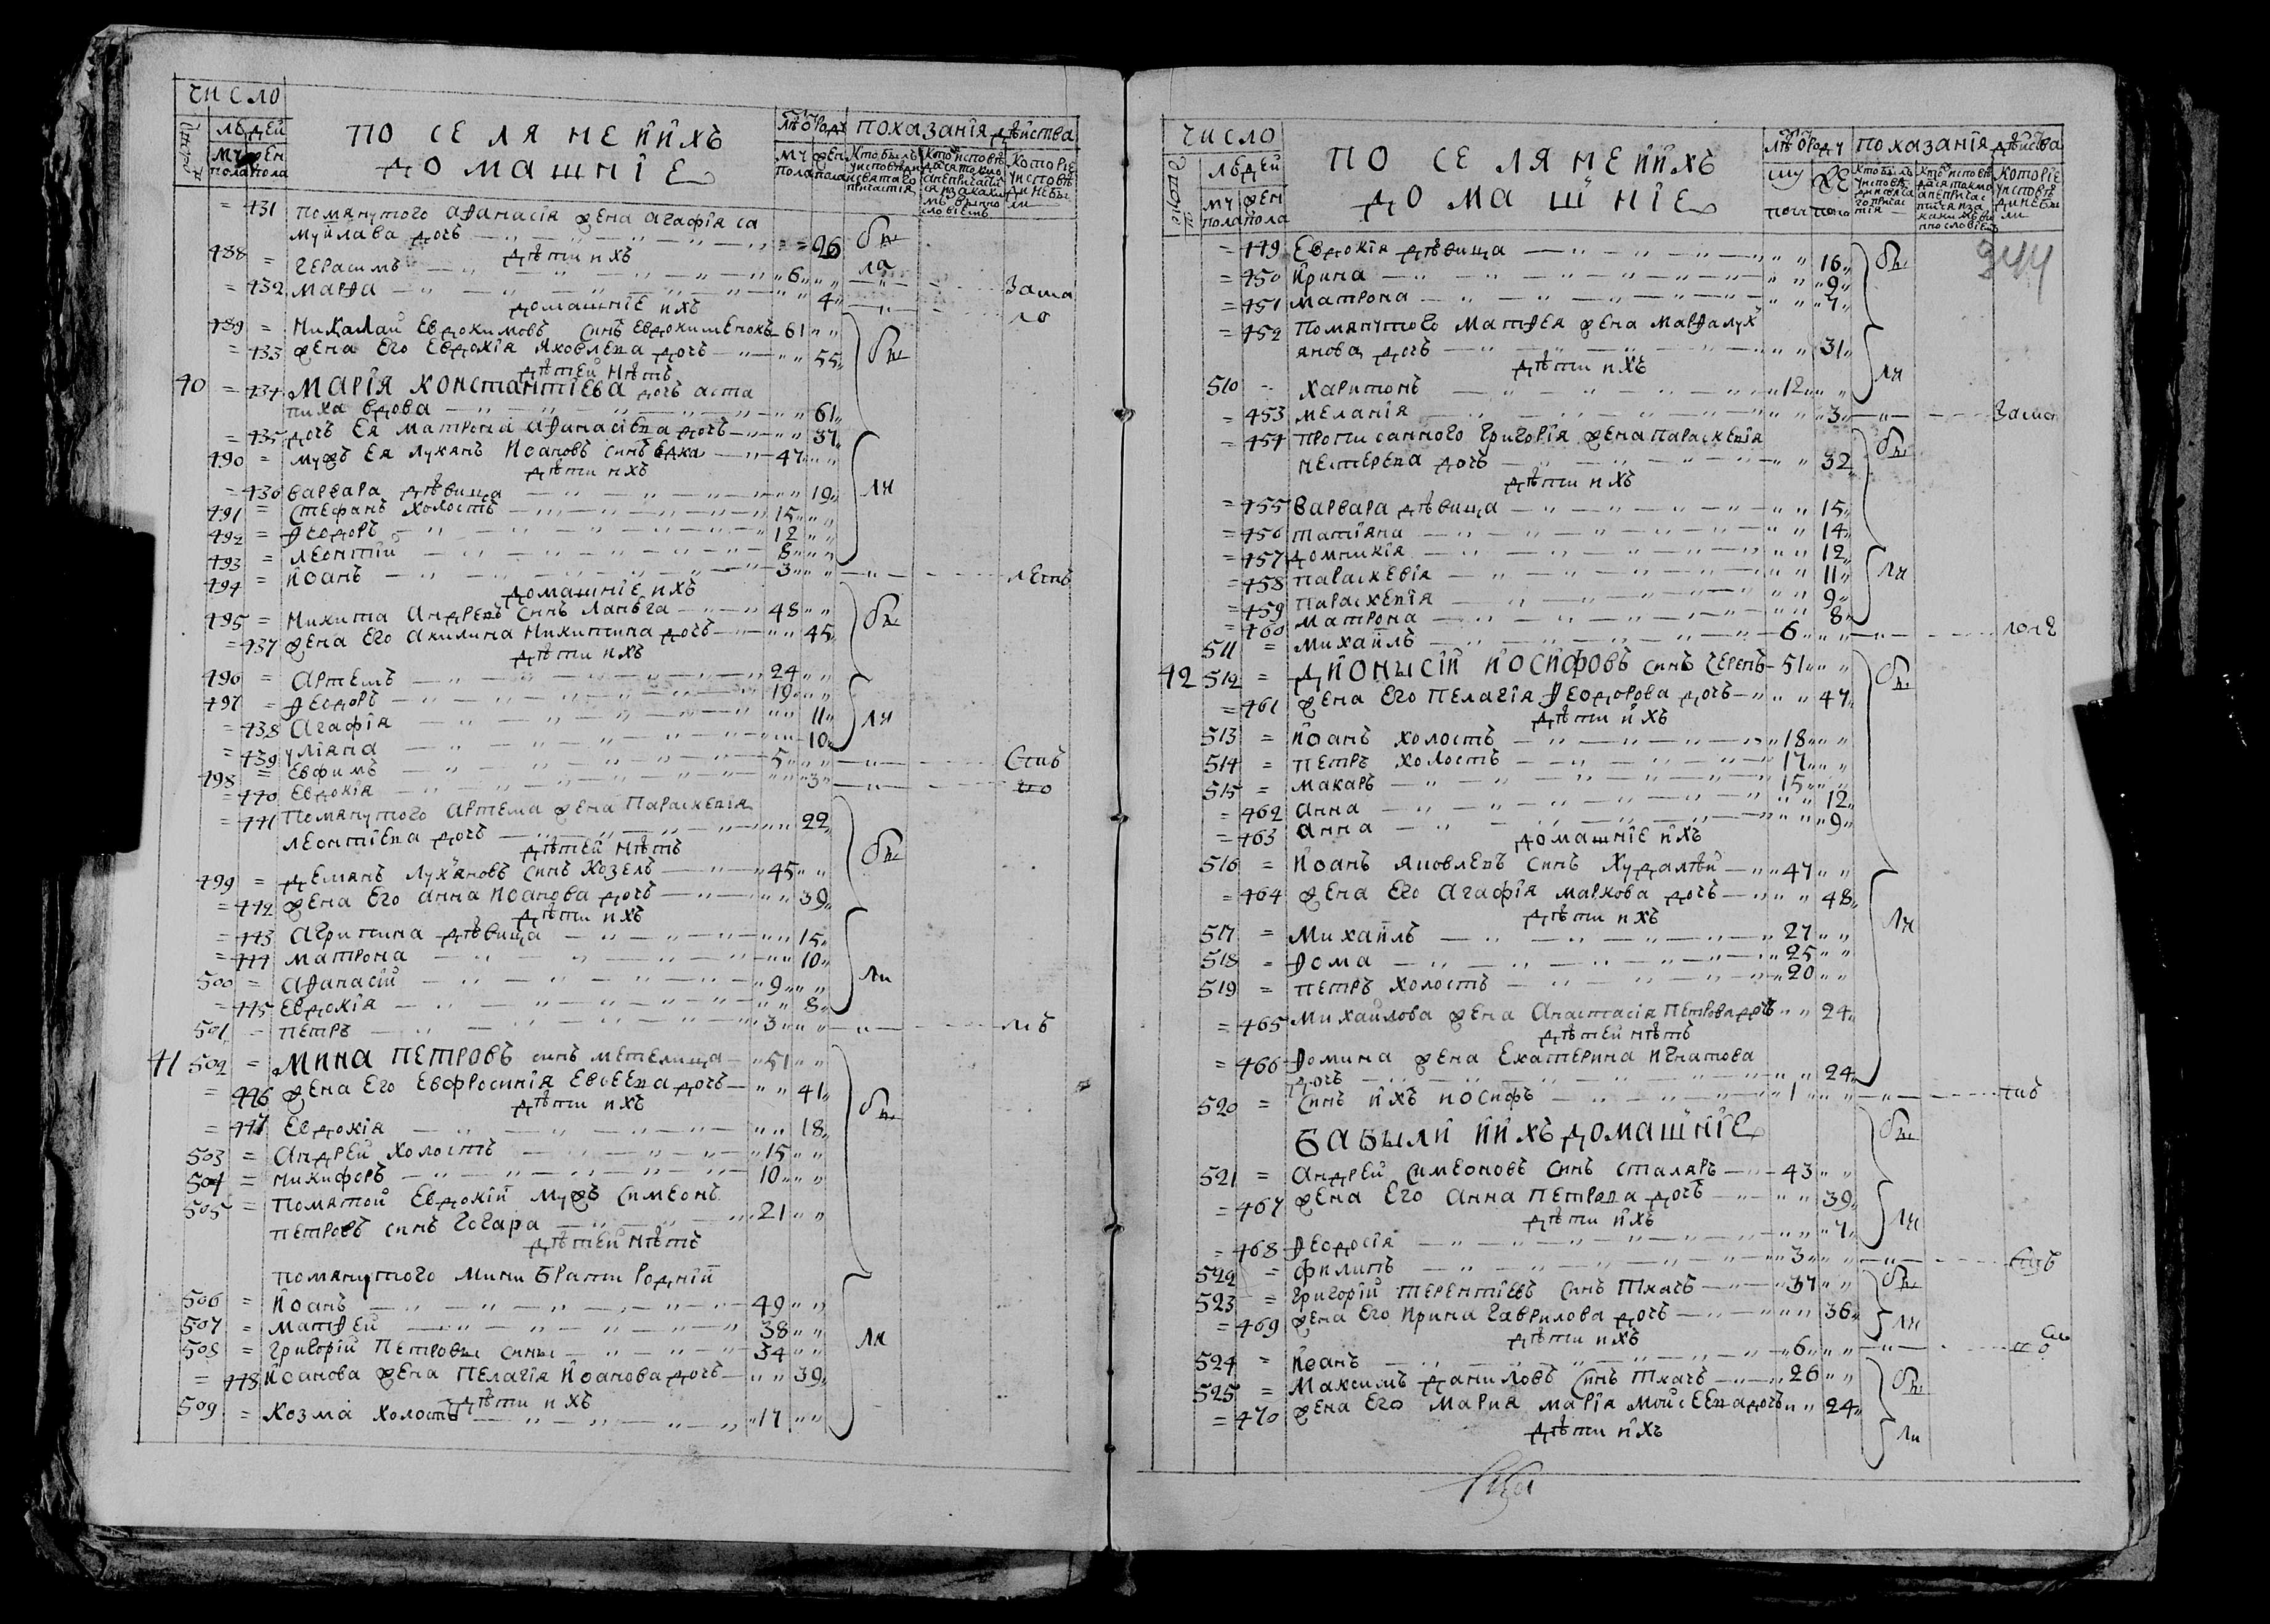 ЧИСЛО
людей
муж жен
пола пола
ПОСЕЛЯНЕ И ИХЪ
ДОМАШНІЕ
показанія дѣйства
= 431 помянутого Афанасія жена Агафія Са
муйлова дочь 26 бы
дѣти ихъ
438 = Герасимъ 6 ла
= 432 Марфа 4 За ма
домашніе ихъ ло
439 = Николай Евдокимовъ синъ Евдокименокъ 61
= 433 жена Его Евдокія Яковлева дочь 55 бы
дѣтей нѣтъ
40 = 434 Марія Константіева дочь Аста
пиха вдова 61
= 435 дочь Ея Матрона Афанасіева дочь 37
490 = мужъ Ея Лукянъ Иоановъ синъ 47
дѣти ихъ
= 436 Варвара дѣвица 19 ли
491 = Стефанъ холостъ 15
492 = Феодоръ 12
493 = Леонтій 8
494 = Иоанъ 3 лѣтъ
домашніе ихъ
495 = Никита Андреевъ синъ 48 бы
= 437 жена Его Акилина Никитина дочь 45
дѣти ихъ
496 = Артемъ 24
497 = Феодоръ 19
= 438 Агафія 11 ли
= 439 Уліяна 10
498 = Евфимъ 5
= 440 Евдокія 3
= 441 помянутого Артема жена Параскевія
Леонтіева дочь 22
дѣтей нѣтъ бы
499 = Демянъ Лукяновъ синъ Козелъ 45
= 442 жена Его Анна Иоанова дочь 39
дѣти ихъ
= 443 Агрипина дѣвица 15
= 444 Матрона 10
500 = Афанасій 9 ли
= 445 Евдокія 8
501 = Петръ 3
41 502 = Мина Петровъ синъ Метелица 51
= 446 жена Его Евфросинія Евсеева дочь 41
дѣти ихъ бы
= 447 Евдокія 18
503 = Андрей холостъ 15
504 = Никифоръ 10
505 = помятой Евдокіи мужъ Симеонъ
Петровъ синъ Гогара 21
дѣтей нѣтъ
помянутого Мини брати родній
506 = Иоанъ 49
507 = Матфей 38 ли
508 = Григорій Петровы сины 34
= 448 Иоанова жена Пелагія Иоанова дочь 39
дѣти ихъ
509 = Козма холостъ 17
ЧИСЛО
людей
муж жен
пола пола
ПОСЕЛЯНЕ И ИХЪ
ДОМАШНІЕ
показанія дѣйства
344
= 449 Евдокія дѣвица 16 бы
= 450 Ирина 9
= 451 Матрона 7
= 452 помянутого Матфея жена Марфа Лук
янова дочь 31
дѣти ихъ ли
510 = Харитонъ 12
= 453 Меланія 3 За мал
= 454 прописанного Григорія жена Параскевія
Нестерева дочь 32 бы
дѣти ихъ
= 455 Варвара дѣвица 15
= 456 Татіяна 14
= 457 Домникія 12
= 458 Параскевія 11 ли
= 459 Параскевія 9
= 460 Матрона 8
511 = Михаилъ 6
42 512 = Дионысій Иосифовъ синъ Черепъ 51 бы
= 461 жена Его Пелагія Феодорова дочь 47
дѣти ихъ
513 = Иоанъ холостъ 18
514 = Петръ холостъ 17
515 = Макаръ 15
= 462 Анна 12
= 463 Анна 9
домашніе ихъ
516 = Иоанъ Яковлевъ синъ Худалѣй 47
= 464 жена Его Агафія Маркова дочь 48
дѣти ихъ ли
517 = Михаилъ 27
518 = Фома 25
519 = Петръ холостъ 20
= 465 Михаилова жена Анастасія Петрова дочь 24
дѣтей нѣтъ
= 466 Фомина жена Екатерина Игнатова
дочь 24
520 = синъ ихъ Иосифъ 1
БАБЫЛИ И ИХЪ ДОМАШНІЕ бы
521 = Андрей Симеоновъ синъ Сталяръ 43
= 467 жена Его Анна Петрова дочь 39
дѣти ихъ ли
= 468 Феодосія 7
522 = Филипъ 3
523 = Григорій Терентіевъ синъ Ткачъ 37 бы
= 469 жена Его Ирина Гаврилова дочь 36 ли
дѣти ихъ
524 = Иоанъ 6
525 = Максимъ Даниловъ синъ Ткачъ 26 бы
= 470 жена Его Мария Марія Мойсеева дочь 24
дѣти ихъ ли